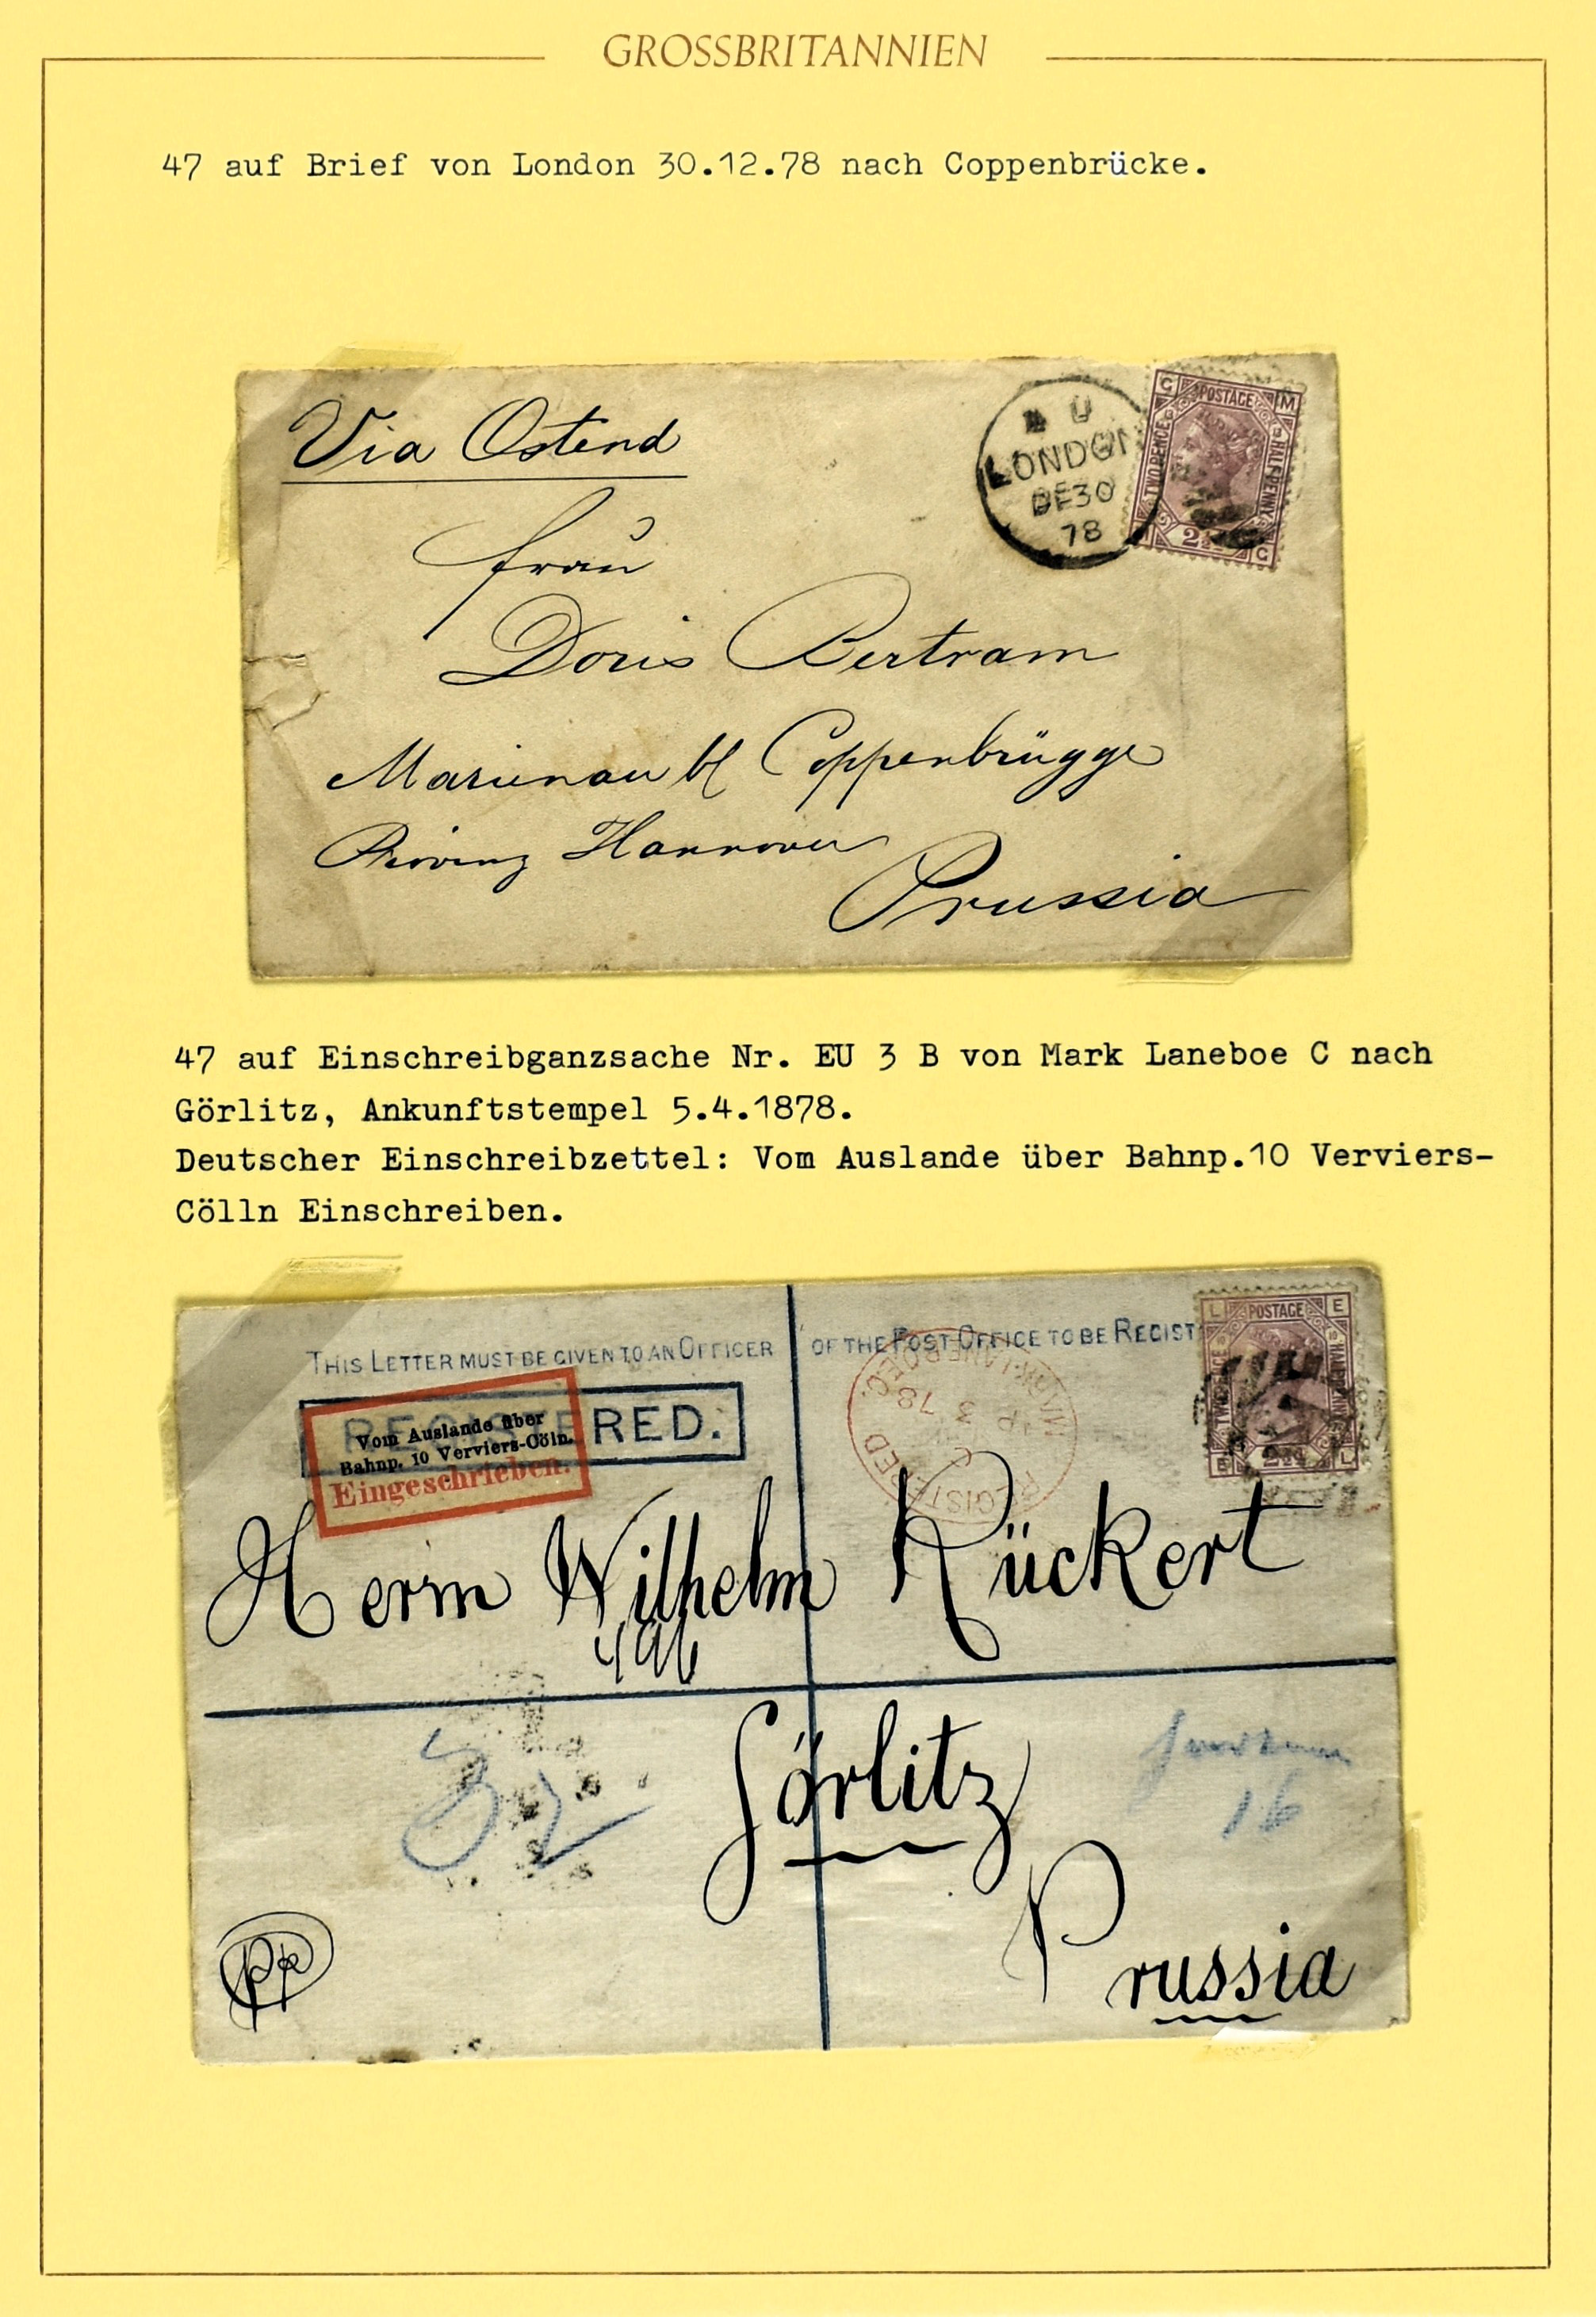 GROSSBRITANNIEN
47 auf Brief von London 30.12.78 nach Coppenbrücke.
Via Ostend
LONDON
DE30
78
G POSTAGE M
TWO PENCE
HALFPENNY
2½
G
Frau
Doris Bertram
Marienau b/ Coppenbrügge
Provinz Hannover
Prussia
47 auf Einschreibganzsache Nr. EU 3 B von Mark Laneboe C nach
Görlitz, Ankunftstempel 5.4.1878.
Deutscher Einschreibzettel: Vom Auslande über Bahnp.10 Verviers-
Cölln Einschreiben.
THIS LETTER MUST BE GIVEN TO AN OFFICER OF THE POST OFFICE TO BE REGIST
L POSTAGE E
REGISTERED.
Vom Auslande über
Bahnp. 10 Verviers-Cöln.
Eingeschrieben.
REGISTERED
MARK LANE B.O. E.C.
AP 3 78
C
2½
E L
Herrn Wilhelm Rückert
496
Görlitz
32
16
Prussia
pp